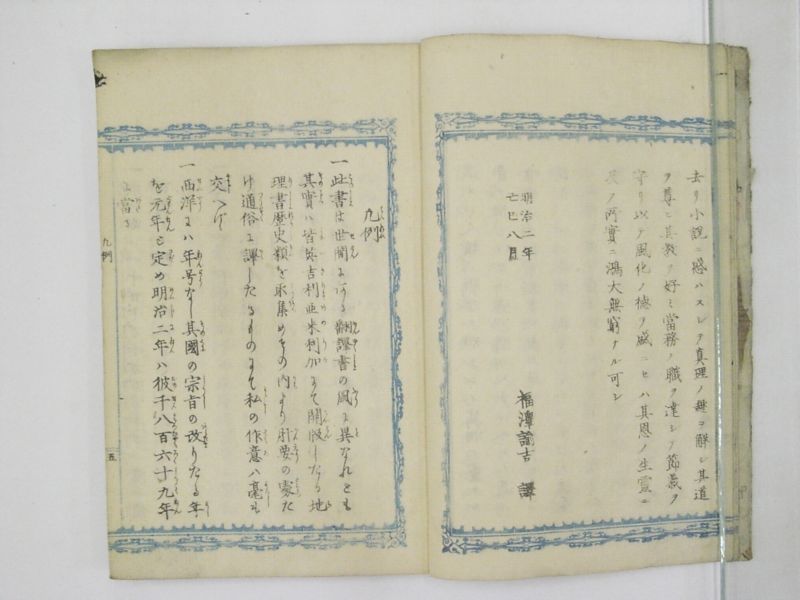 去リ小説ニ惑ハスシテ真理ノ鍵ヲ解シ其道
ヲ尊ミ其教ヲ好ミ當務ノ職ヲ達シテ節義ヲ
守リ以テ風化ノ徳ヲ盛ニセハ其恩ノ生霊ニ
及フ所實ニ鴻大無窮ナル可シ
明治二年
己巳八月
福澤諭吉 譯
凡例
一此書は世間にある翻譯書の風に異なれとも
其實ハ皆英吉利亜米利加にて開版したる地
理書歴史類を取集めその内より肝要の處た
け通俗に譯したるものにて私の作意ハ毫も
交へず
一西洋にハ年号なし其國の宗旨の改りたる年
を元年と定め明治二年ハ彼千八百六十九年
に當る
凡例
五